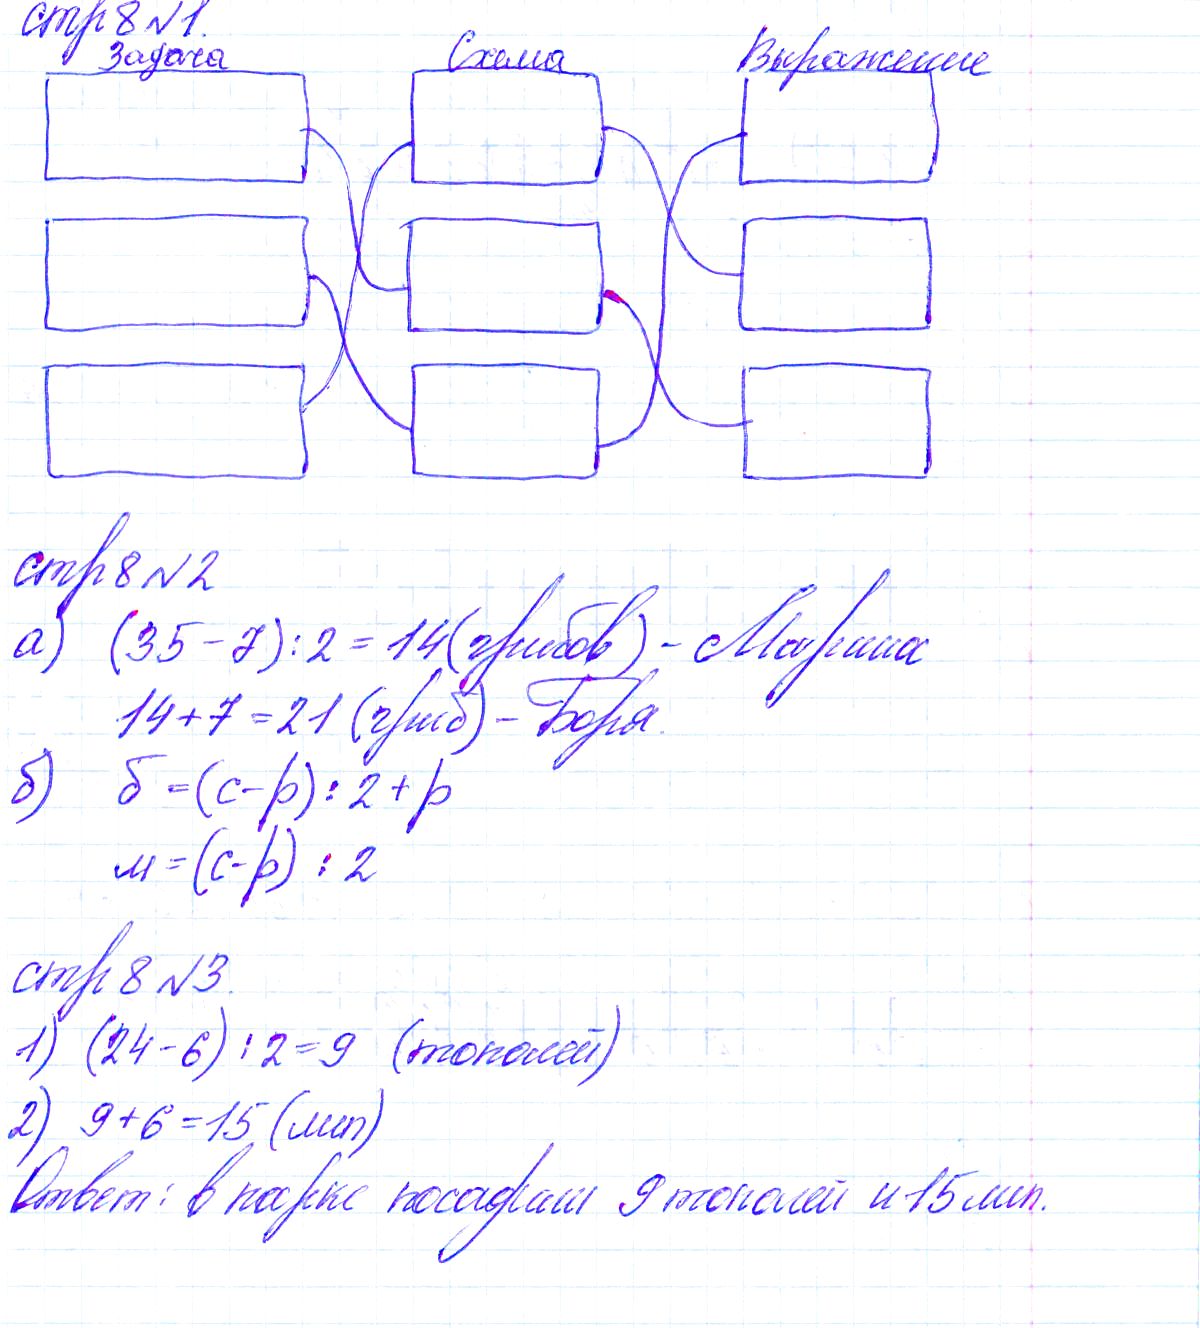 стр 8 №1.
Задача Схема Выражение
стр 8 №2
а) (35-7):2=14(грибов) - Марина
14+7=21(гриб) - Боря.
б) б=(с-р):2+р
м=(с-р):2
стр 8 №3.
1) (24-6):2=9 (тополей)
2) 9+6=15(лип)
Ответ: в парке посадили 9 тополей и 15 лип.